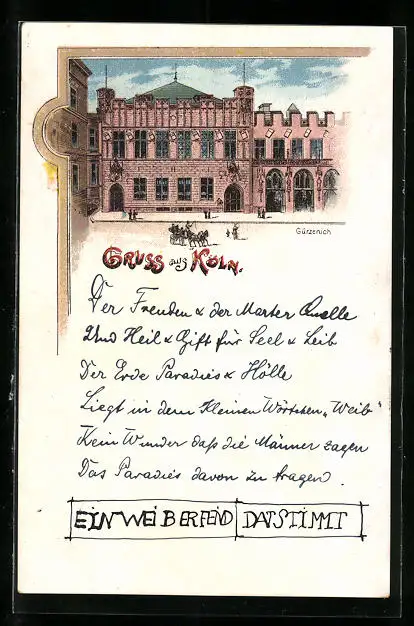 Gürzenich
GRUSS aus KÖLN.
Der Freuden & der Marter Quelle
Und Heil & Gift für Seel & Leib
Der Erde Paradies & Hölle
Liegt in dem kleinen Wörtchen „Weib"
Kein Wunder daß die Männer zagen
Das Paradies davon zu tragen.
EIN WEIBERFEIND DAT STIMMT